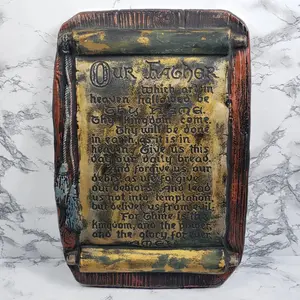 Our Father
Which art in
heaven hallowed be
THY NAME.
Thy kingdom come.
Thy will be done
in earth, as it is in
heaven. Give us this
day our daily bread.
And forgive us our
debts as we forgive
our debtors. And lead
us not into temptation,
but deliver us from evil.
For Thine is the
Kingdom, and the power,
and the glory for ever
AMEN